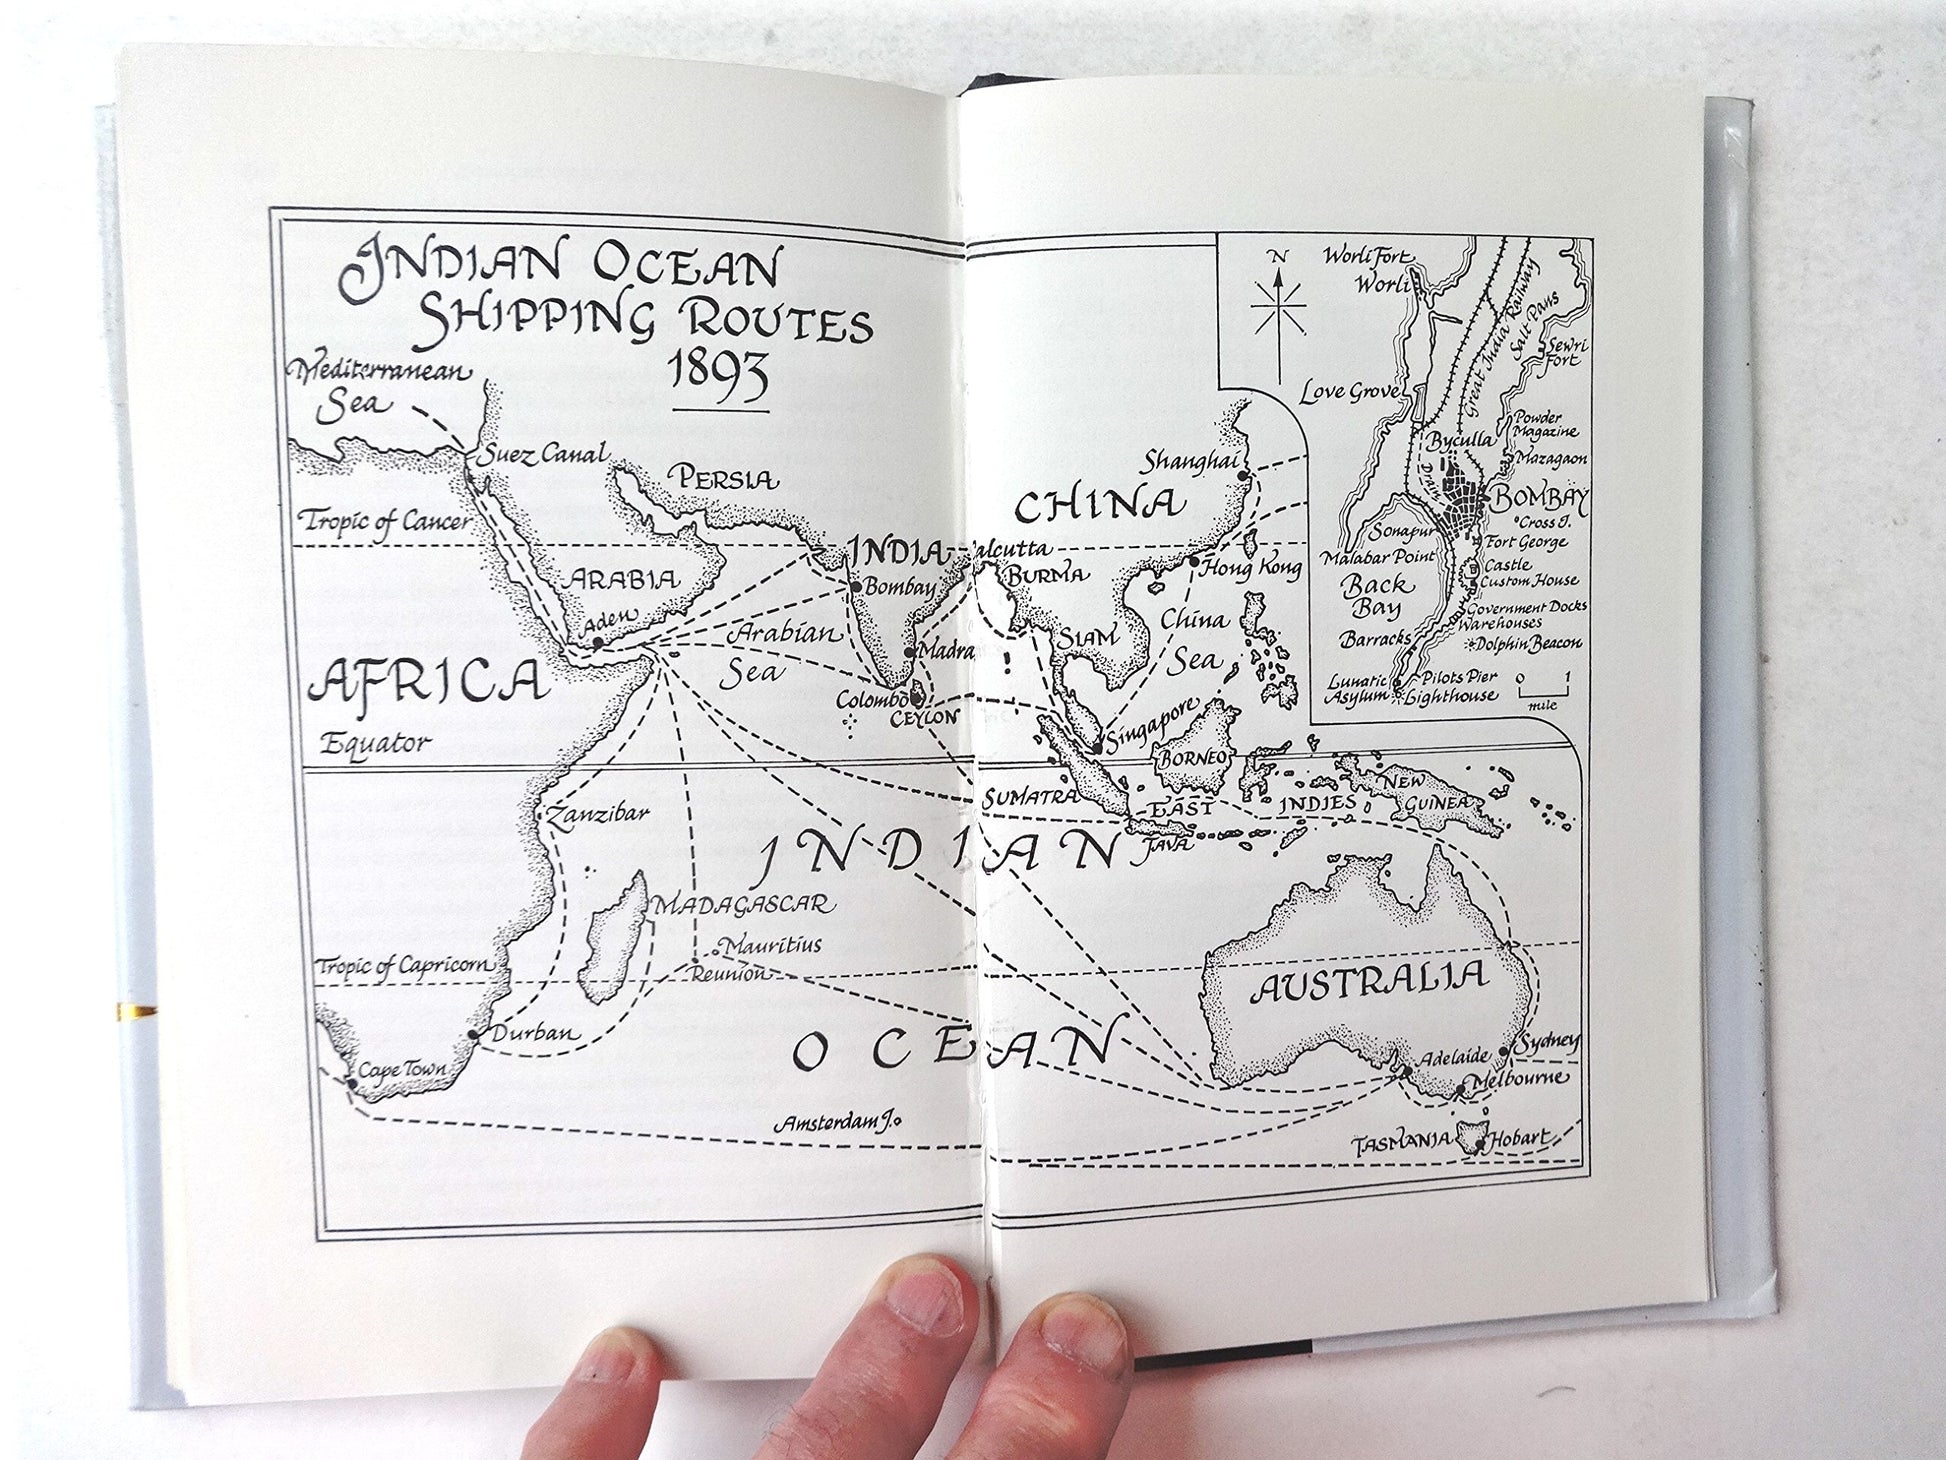 INDIAN OCEAN
SHIPPING ROUTES
1893
Mediterranean
Sea
Suez Canal
PERSIA
Tropic of Cancer
INDIA
ARABIA
Aden
Bombay
Arabian
Sea
Madra
Colombo
CEYLON
AFRICA
Equator
Zanzibar
MADAGASCAR
Mauritius
Reunion
Tropic of Capricorn
Durban
Cape Town
Amsterdam I.
INDIAN
OCEAN
Shanghai
CHINA
alcutta
BURMA
Hong Kong
China
Sea
SIAM
Singapore
BORNEO
SUMATRA
EAST INDIES
JAVA
NEW
GUINEA
AUSTRALIA
Adelaide
Sydney
Melbourne
TASMANIA
Hobart
N
Worli Fort
Worli
Great India Railway
Salt Pans
Sewri
Fort
Love Grove
Powder
Magazine
Byculla
Mazagaon
BOMBAY
Cross I.
Sonapur
Fort George
Malabar Point
Castle
Custom House
Back
Bay
Government Docks
Warehouses
Barracks
Dolphin Beacon
Lunatic
Asylum
Pilots Pier
Lighthouse
0 1
mile